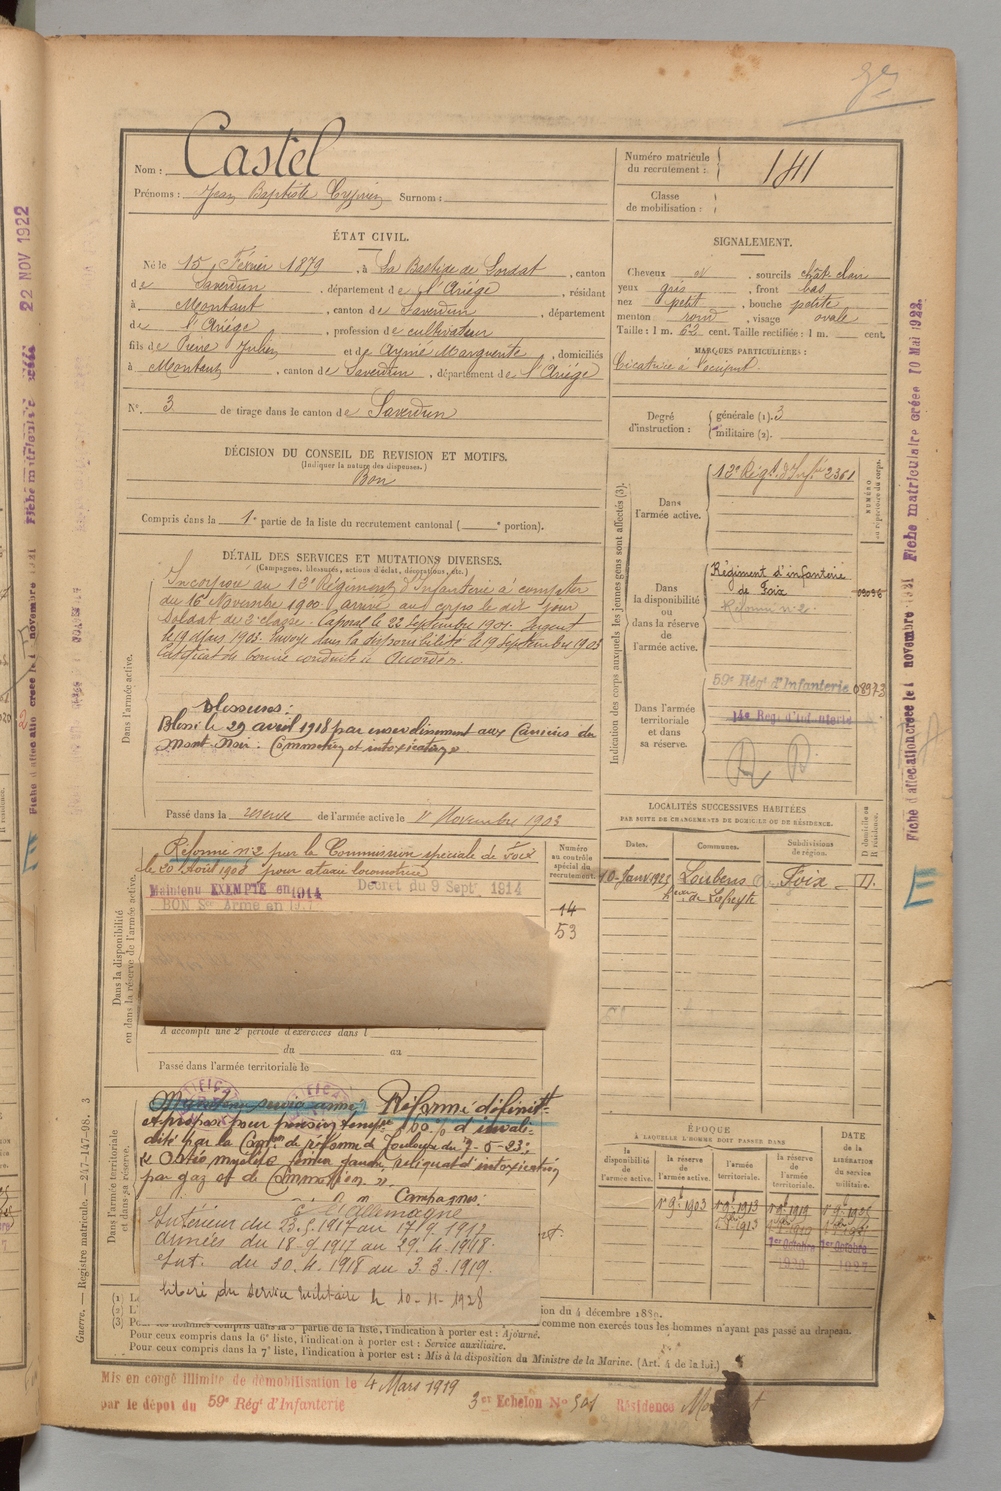 Nom : Castel
Prénoms : Jean Baptiste Cyprien Surnom :
Numéro matricule du recrutement : 141
Classe de mobilisation :
ÉTAT CIVIL.
Né le 15 Février 1879, à La Bastide de Lordat, canton
de Saverdun, département de l'Ariège, résidant
à Montaut, canton de Saverdun, département
de l'Ariège, profession de cultivateur
fils de Pierre Julien et de Aymé Marguerite, domiciliés
à Montaut, canton de Saverdun, département de l'Ariège
N° 3 de tirage dans le canton de Saverdun
SIGNALEMENT.
Cheveux et, sourcils chât. clair
yeux gris, front bas
nez petit, bouche petite
menton rond, visage ovale
Taille : 1 m. 62 cent. Taille rectifiée : 1 m. cent.
MARQUES PARTICULIÈRES :
Cicatrice à l'occiput.
Degré d'instruction : générale (1). 3
militaire (2).
DÉCISION DU CONSEIL DE REVISION ET MOTIFS.
(Indiquer la nature des dispenses.)
Bon
Compris dans la 1e partie de la liste du recrutement cantonal ( e portion).
DÉTAIL DES SERVICES ET MUTATIONS DIVERSES.
(Campagnes, blessures, actions d'éclat, décorations, etc.)
Dans l'armée active.
Incorporé au 13e Régiment d'Infanterie à compter
du 16 Novembre 1900 arrivé au corps le dit jour
Soldat de 2e classe. Caporal le 22 Septembre 1901. Sergent
le 19 Mars 1903. Envoyé dans la disponibilité le 19 Septembre 1903
Certificat de bonne conduite "Accordé".
Blessures :
Blessé le 29 avril 1918 par ensevelissement aux Carrières du
Mont Noir. Commotion et intoxication
Passé dans la réserve de l'armée active le 1r Novembre 1903
Dans la disponibilité ou dans la réserve de l'armée active.
Réformé n°2 par la Commission spéciale de Foix
le 20 Avril 1908 pour ataxie locomotrice
Maintenu EXEMPTÉ en 1914 Décret du 9 Sept 1914
BON Sce Armé en
A accompli une 2e période d'exercices dans l
du au
Passé dans l'armée territoriale le
Numéro au contrôle spécial du recrutement.
14
53
Indication des corps auxquels les jeunes gens sont affectés (3).
NUMÉRO au répertoire du corps.
Dans l'armée active.
13e Régt. d'Infie 2361
Dans la disponibilité ou dans la réserve de l'armée active.
Régiment d'infanterie
de Foix
Réformé n°2
Dans l'armée territoriale et dans sa réserve.
59e Régt d'Infanterie 08973
14e Régt d'Infanterie
LOCALITÉS SUCCESSIVES HABITÉES
PAR SUITE DE CHANGEMENTS DE DOMICILE OU DE RÉSIDENCE.
Dates. Communes. Subdivisions de région. D domicile ou R résidence.
10 Janv. 1925 Loubens Foix D.
Dans l'armée territoriale et dans sa réserve.
Réformé définitt
et proposé pour pension tempre 100 % d'invali-
dité par la Comon de réforme de Toulouse du 7-6-23 :
fémur gauche, reliquat d'intoxication
par gaz et de Commotion ».
Campagnes :
C. l'Allemagne
Intérieur du 23.5.1917 au 17.9.1917
Armées du 18-9.1917 au 29.4.1918.
Int. du 30.4.1918 au 3.3.1919.
Libéré du service militaire le 10-11-1928
ÉPOQUE
À LAQUELLE L'HOMME DOIT PASSER DANS
la disponibilité de l'armée active. la réserve de l'armée active. l'armée territoriale. la réserve de l'armée territoriale.
DATE de la LIBÉRATION du service militaire.
1r 9bre 1903 1r 9bre 1913 1r 9bre 1919
1er Octobre 1er Octobre
ion du 4 décembre 1889.
comme non exercés tous les hommes n'ayant pas passé au drapeau.
(3) Pour les hommes compris dans la 5e partie de la liste, l'indication à porter est : Ajourné.
Pour ceux compris dans la 6e liste, l'indication à porter est : Service auxiliaire.
Pour ceux compris dans la 7e liste, l'indication à porter est : Mis à la disposition du Ministre de la Marine. (Art. 4 de la loi.)
Mis en congé illimité de démobilisation le 4 Mars 1919
par le dépôt du 59e Régt d'Infanterie 3er Echelon No 501 Résidence
Guerre. — Registre matricule. — 247-147-98. 3
22 NOV 1922
Fiche matriculaire créée 10 Mai 1922.
Fiche d'affectation créée le 1 novembre 1931